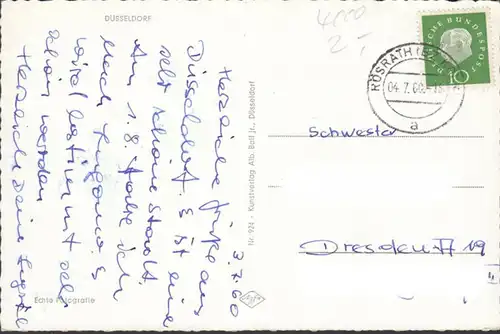 DÜSSELDORF
4000
2,-
DEUTSCHE BUNDESPOST
10
RÖSRATH
04.7.60.-18
a
3.7.60
Herzliche Grüße aus
Düsseldorf. Es ist eine
sehr schöne Stadt.
Am 1.8. fahre ich
nach Lugano. Es
wird bestimmt sehr
schön werden
Herzlich Deine
Schwester
Dresden A 19
Nr. 974 - Kunstverlag Alb. Boll jr., Düsseldorf
Echte Fotografie
Agfa